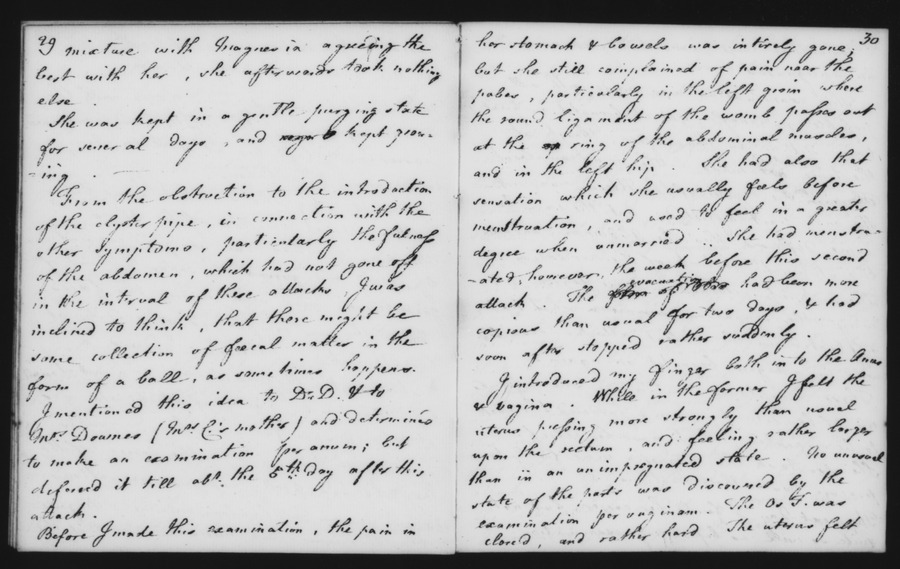 29
mixture with Magnesia agreeing the
best with her, she afterwards took nothing
else.
She was kept in a gentle purging state
for several days, and kept grow=
=ing.
From the obstruction to the introduction
of the clyster pipe, in connection with the
other symptoms, particularly the fulness
of the abdomen, which had not gone off
in the interval of these attacks, I was
inclined to think, that there might be
some collection of fœcal matter in the
form of a ball, as sometimes happens.
I mentioned this idea to Dr. D. & to
Mrs. Downes (Mrs. C's mother) and determined
to make an examination per anum; but
defered it till abt. the 5th. day after this
attack.
Before I made this examination, the pain in
30
her stomach & bowels was intirely gone;
but she still complained of pain near the
pubes, particularly in the left groin where
the round ligament of the womb passes out
at the ring of the abdominal muscles,
and in the left hip. She had also that
sensation which she usually feels before
menstruation, and used to feel in a greater
degree when unmarried. She had menstru=
=ated, however, the week before this second
attack. The evacuation had been more
copious than usual for two days, & had
soon after stopped rather suddenly.
I introduced my finger both into the Anus
& vagina. While in the former I felt the
uterus pressing more strongly than usual
upon the rectum, and feeling rather larger
than in an unimpregnated state. No unusual
state of the parts was discovered by the
examination per vaginam. The Os T. was
closed, and rather hard. The uterus felt